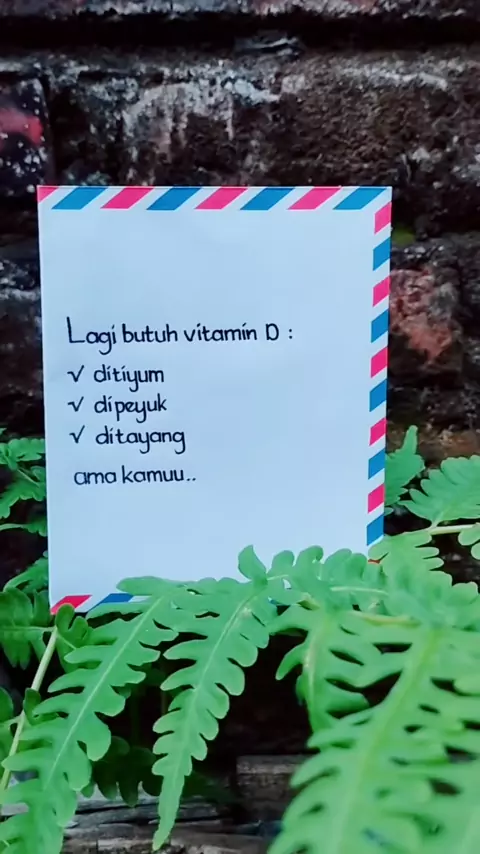 Lagi butuh vitamin D :
√ ditiyum
√ dipeyuk
√ ditayang
ama kamuu..